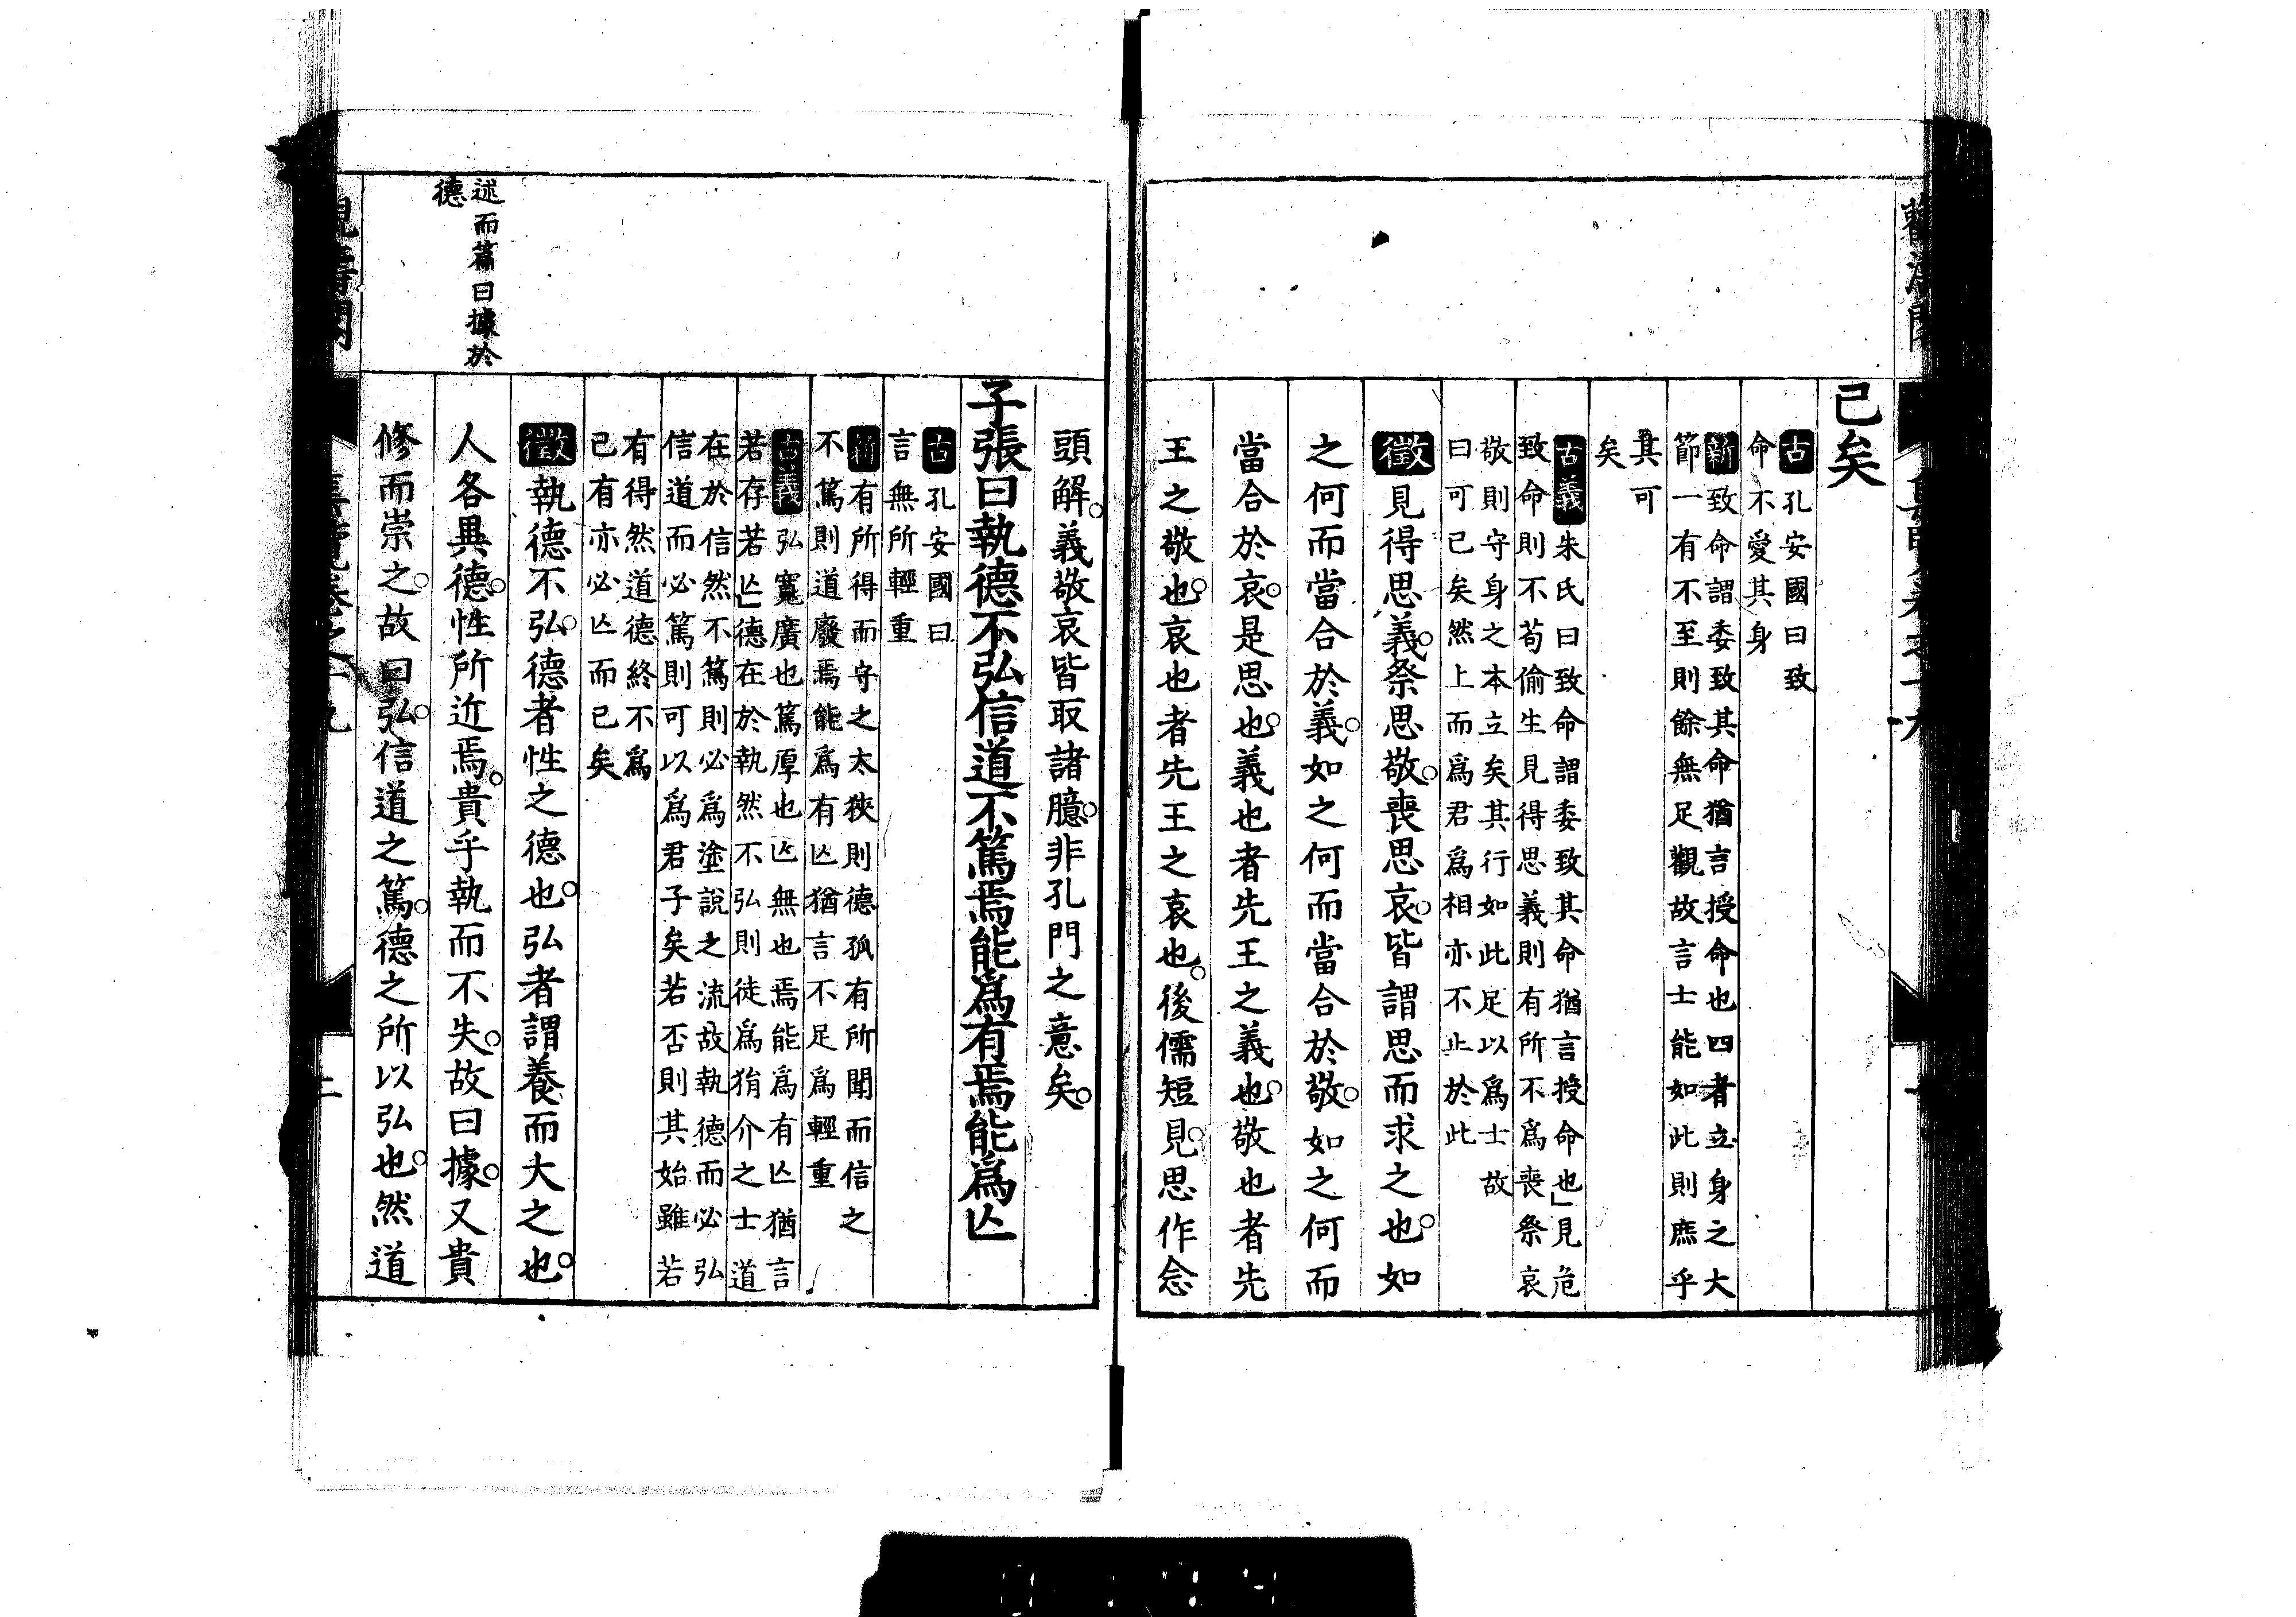 已矣
古孔安國曰致
命不愛其身
新致命謂委致其命猶言授命也四者立身之大
節一有不至則餘無足觀故言士能如此則庶乎
其可
矣
古義朱氏曰致命謂委致其命猶言授命也」見危
致命則不苟偷生見得思義則有所不爲喪祭哀
敬則守身之本立矣其行如此足以爲士故
曰可已矣然上而爲君爲相亦不止於此
徵見得思義。祭思敬。喪思哀。皆謂思而求之也。如
之何而當合於義。如之何而當合於敬。如之何而
當合於哀。是思也。義也者先王之義也。敬也者先
王之敬也。哀也者先王之哀也。後儒短見。思作念
頭解。義敬哀皆取諸臆。非孔門之意矣。
子張曰執德不弘信道不篤焉能爲有焉能爲亾
古孔安國曰
言無所輕重
新有所得而守之太狹則德孤有所聞而信之
不篤則道廢焉能爲有亾猶言不足爲輕重
古義弘寬廣也篤厚也亾無也焉能爲有亾猶言
若存若亾」德在於執然不弘則徒爲狷介之士道
在於信然不篤則必爲塗說之流故執德而必弘
信道而必篤則可以爲君子矣若否則其始雖若
有得然道德終不爲
已有亦必亾而已矣
徵執德不弘。德者性之德也。弘者謂養而大之也。
人各異德。性所近焉。貴乎執而不失。故曰據。又貴
述而篇曰據於
德
修而崇之。故曰弘。信道之篤。德之所以弘也。然道